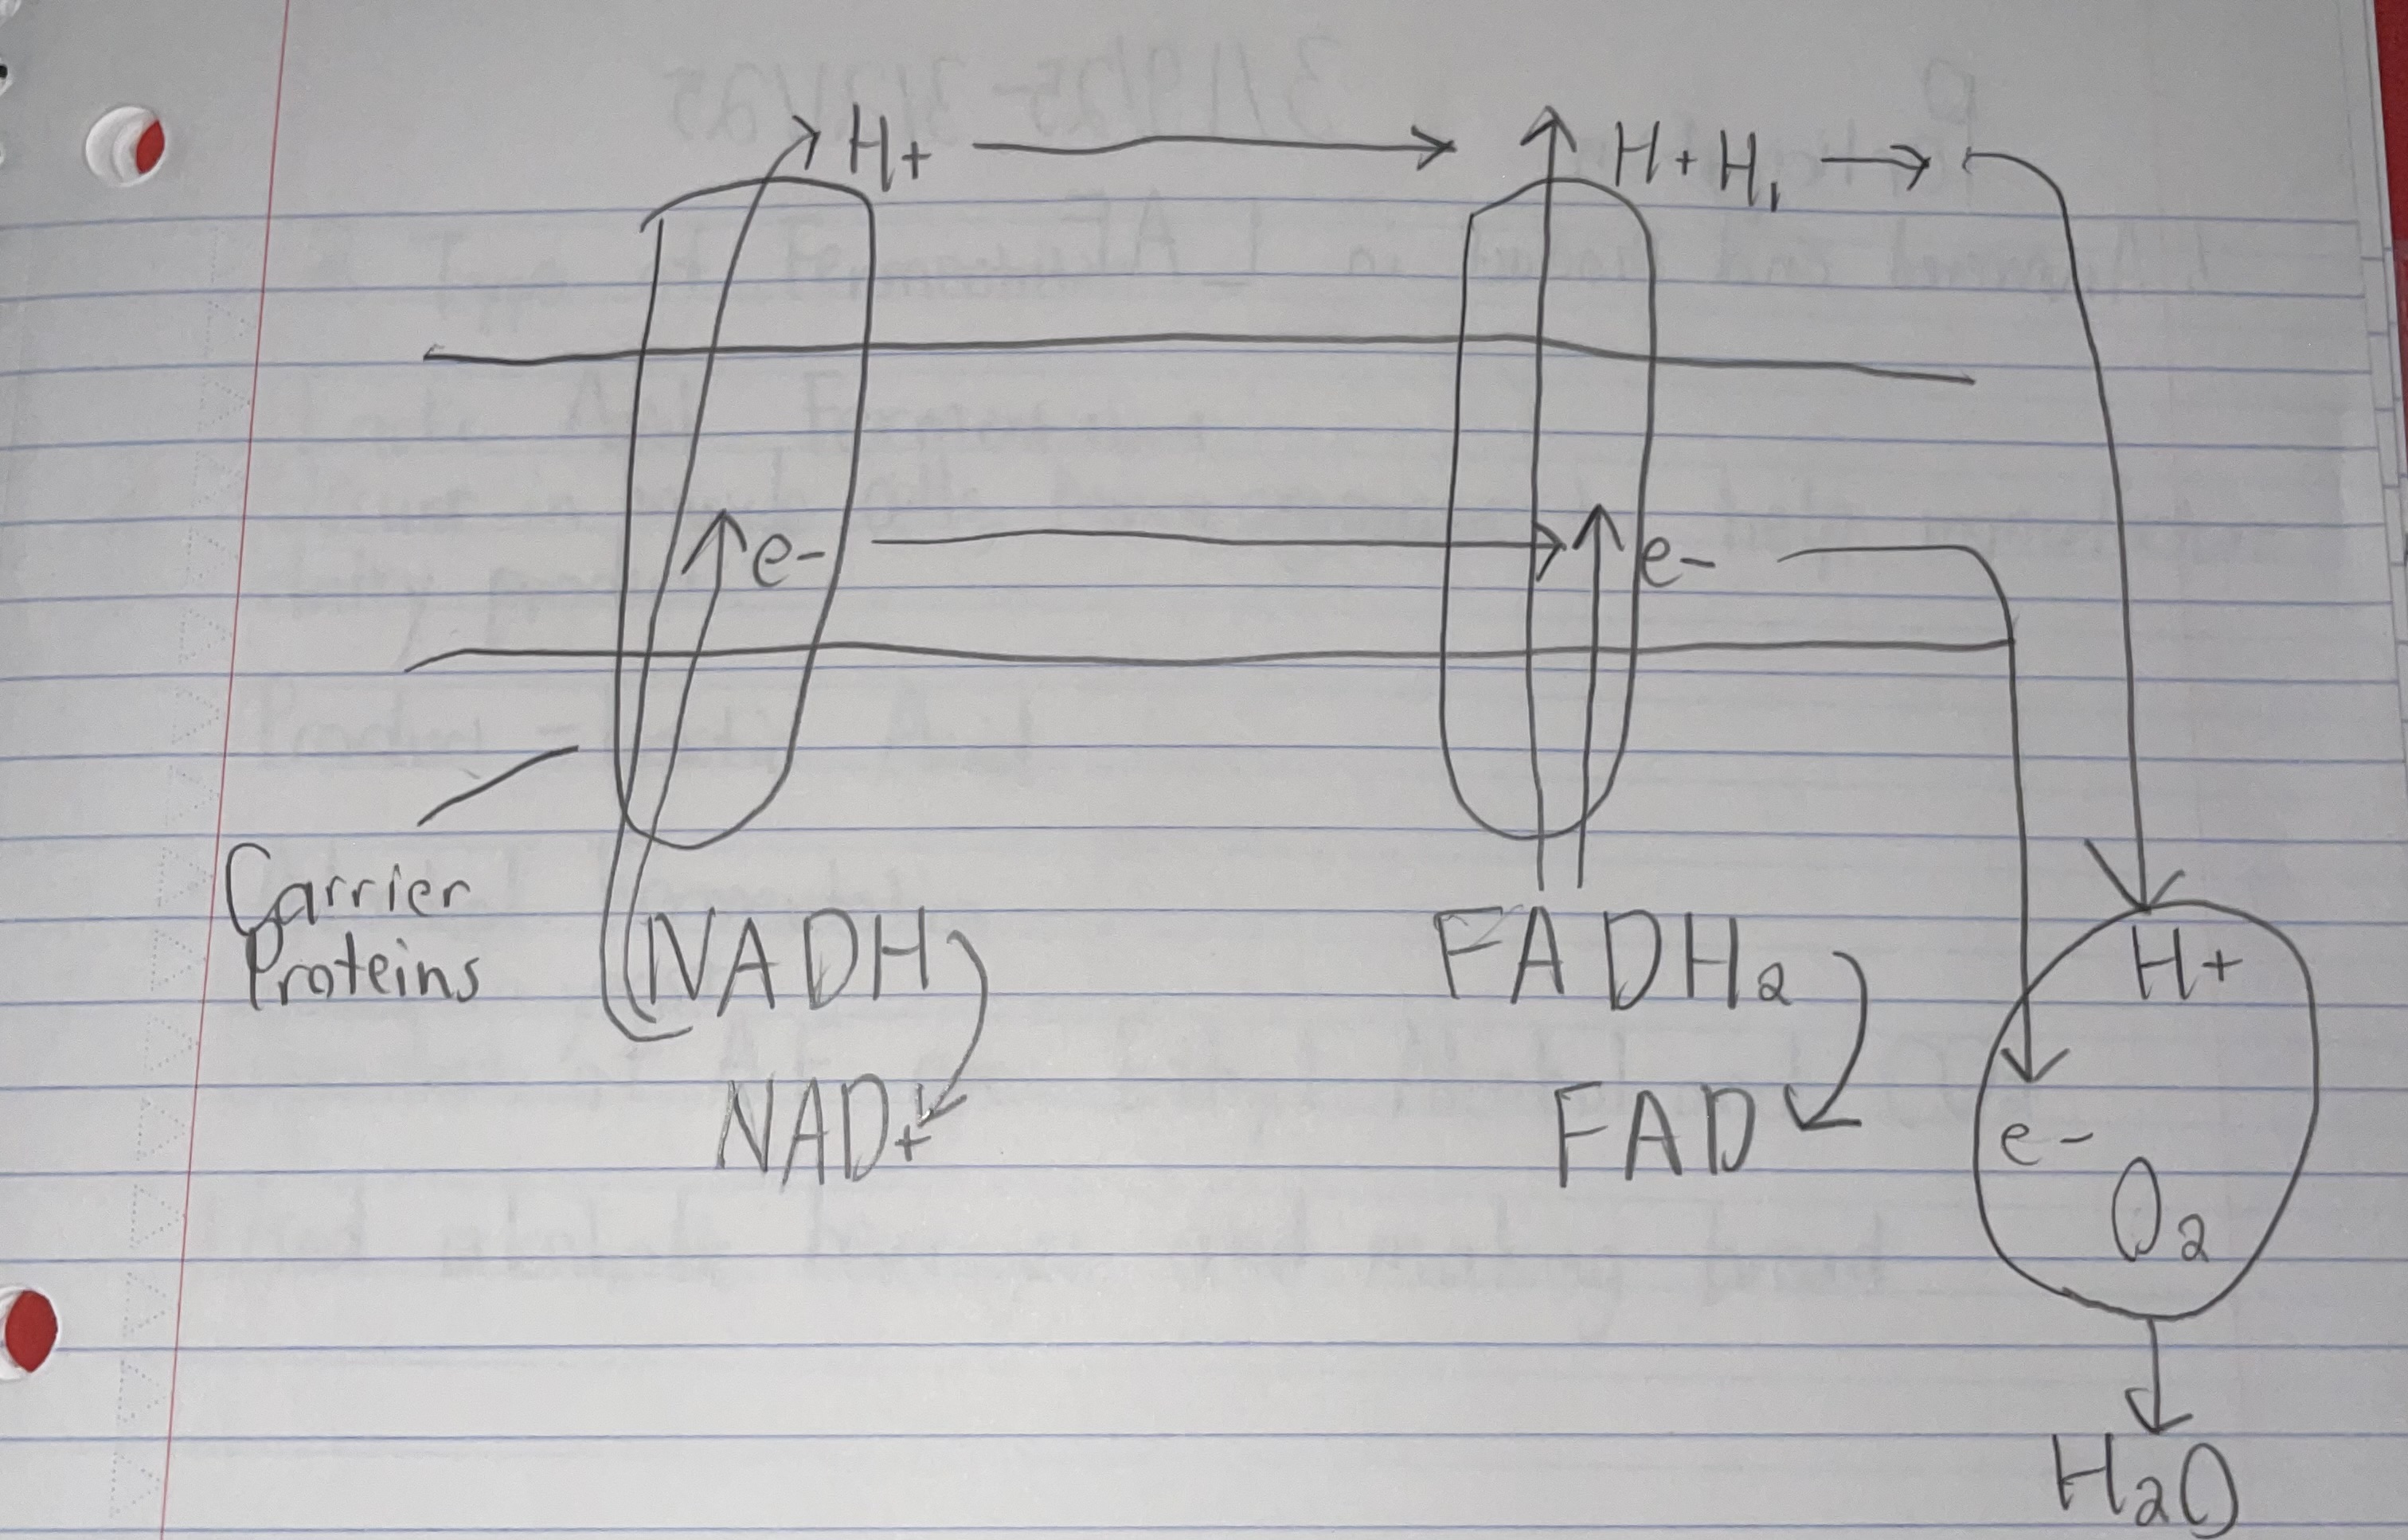 H+ H+H,
e- e-
Carrier
Proteins
NADH FADH2
H+
NAD+ FAD e-
O2
H2O